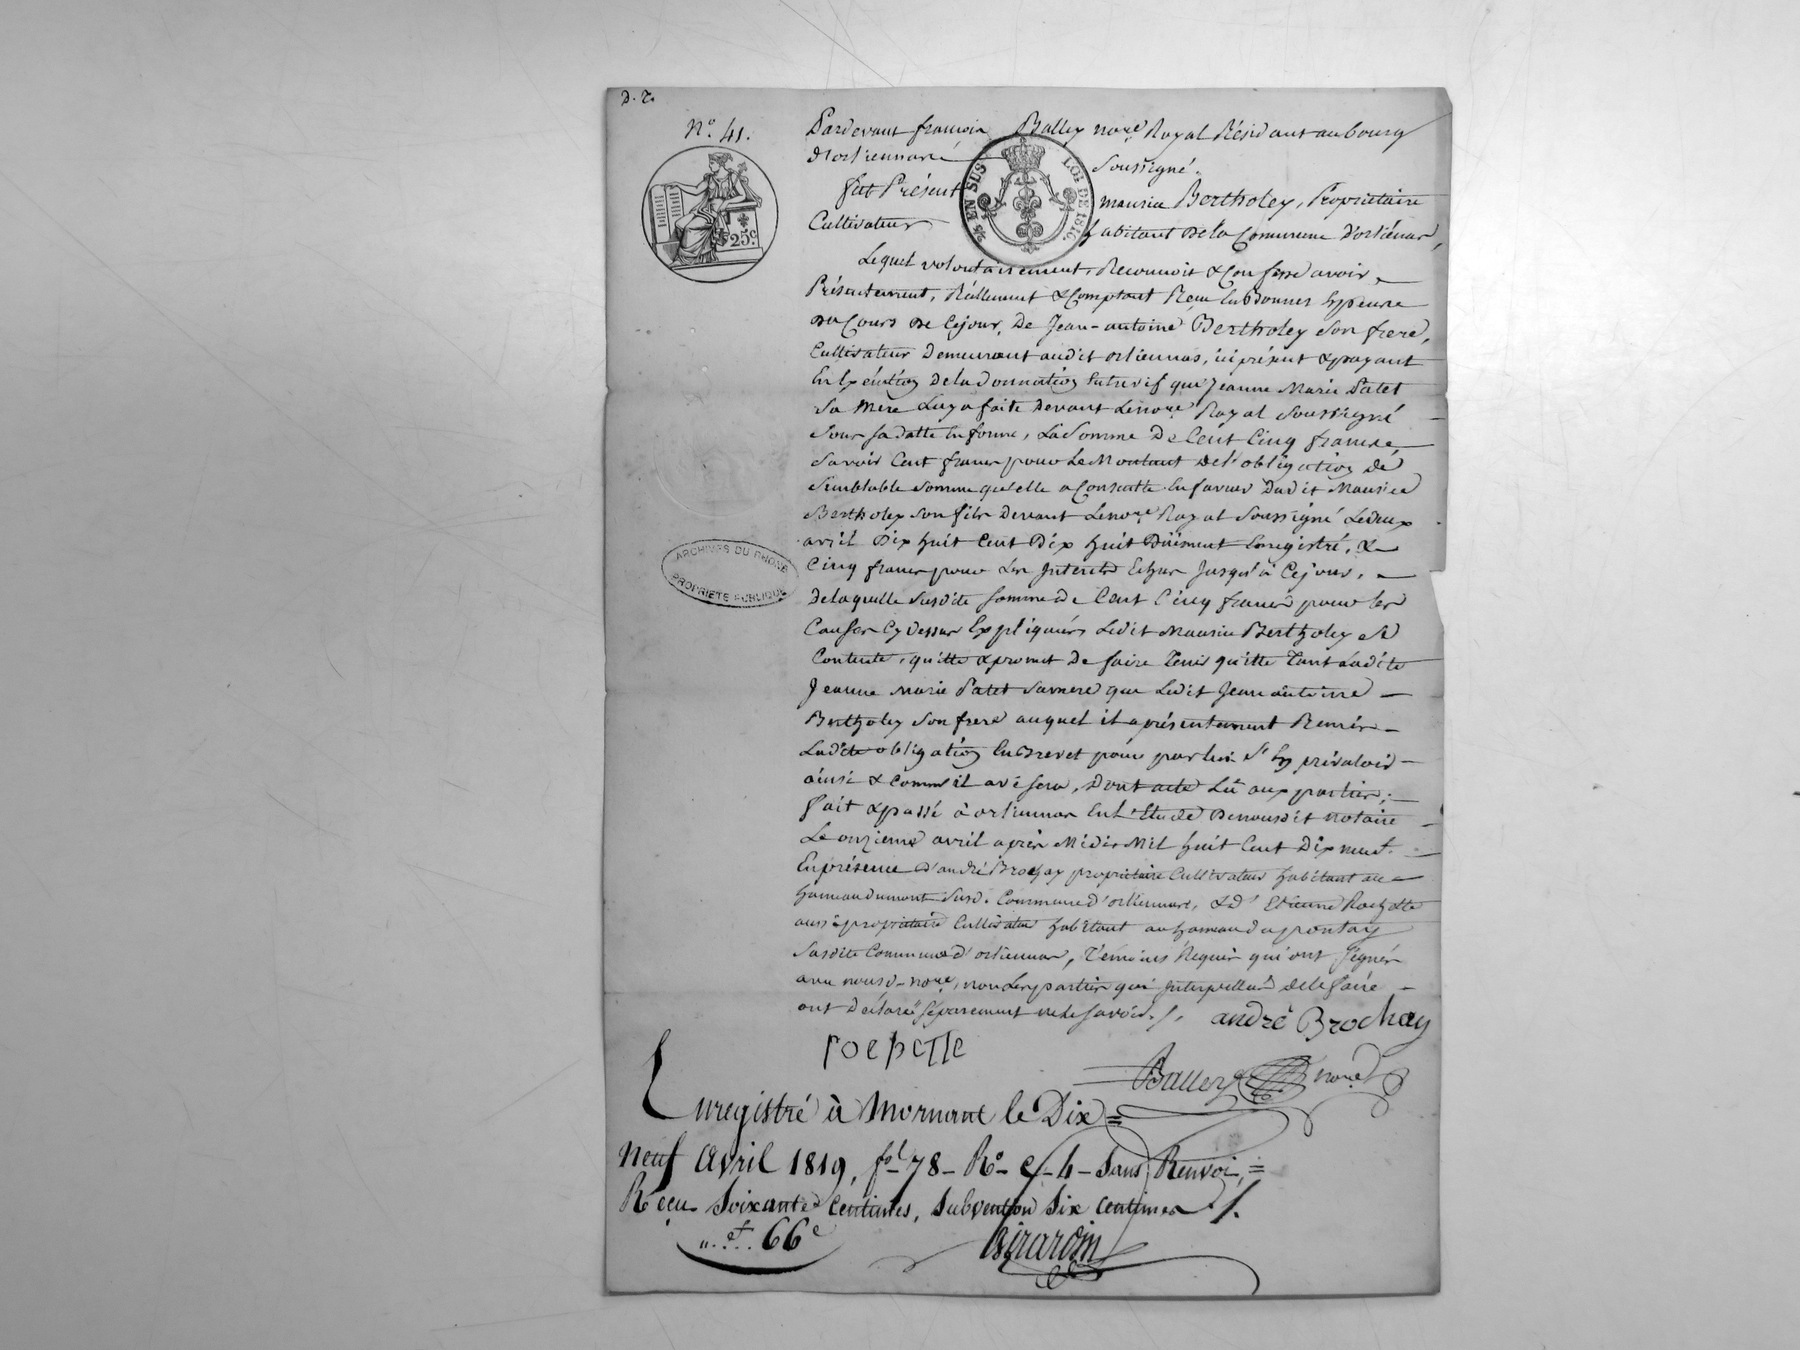 D. T.
N.º 41.
Pardevant françois Balley no.re Royal Résidant au bourg
d'orliennard soussigné.
fut Présent maurice Bertholey, Propriétaire
Cultivateur habitant De la Commune d'orliénar,
Lequel volontairement, Reconnoit & Confesse avoir
Présentement, Réellement & Comptant Reçu En Bonnes Espeuce
au Cours De Cejour, De Jean-antoine Bertholey Son frere,
Cultivateur Demeurant audit orliennas, ici présent & payant
En Exécution De la Donnation Entrevif que Jeanne Marie Patet
Sa Mere Luy a faite Devant Leno.re Royal Soussigné
Sous sa datte En forme, La Somme De Cent Cinq francs,
Savoir Cent francs pour Le Montant De l'obligation de
Semblable Somme qu'elle a Consentie En faveur Dudit Maurice
Bertholey son fils Devant Leno.re Royal Soussigné Ledeux
avril Dix huit Cent Dix huit Dûement Enregistré, &
Cinq francs pour Les Interets Echus Jusqu'à Cejour,
De laquelle Susdite Somme De Cent Cinq francs pour les
Causes Cy Dessus Expliquées Ledit Maurice Bertholey Se
Contente, quitte & promet De faire Tenir quitte Tant Ladite
Jeanne Marie Patet Samere que Ledit Jean antoine
Bertholey Son frere auquel il a présentement Remis
Ladite obligation En Brevet pour par lui S'En prévaloir
ainsi & Comm'il avisera, Dont acte Lû aux parties;
fait & passé à orliennas En L'Etude De nousdit notaire
Le onzieme avril après Midi Mil huit Cent Dix neuf.
En présence d'andré Brochay propriétaire Cultivateur habitant au
hameau dumont Susd. Commune d'orliennars, & d'Etienne Rochette
aussi propriétaire Cultivateur habitant au hameau du pontay
Susdite Commune d'orliennas, Témoins Requis qui ont Signés
avec nousd. no.re, non Les parties qui Interpellées de le faire
ont Déclaré Séparement ne le Savoir./.
andré Brochay
rochette
Balley no.re
Enregistré à Mornant le Dix=
neuf avril 1819, fol 78 - R.º c. 4 - Sans Renvoi,=
Reçu Soixante Centimes, Subvention Six Centimes ./.
66c
Girardin
25.c
25 EN SUS
LOI DE 1816.
ARCHIVES DU RHONE
PROPRIÉTÉ PUBLIQUE